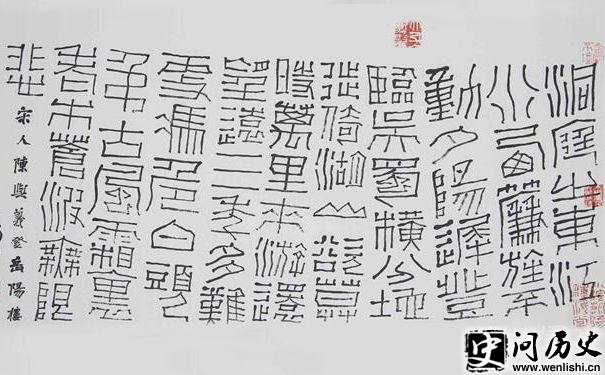 洞庭之東江
水西簾旌不
動夕陽遲登
臨吳蜀橫分地
徙倚湖山欲暮
時萬里來游還
望遠三年多難
更憑危白頭
弔古風霜裏
老木蒼波無限
悲
宋人陳與義登岳陽樓
史 问历史
www.wenlishi.cn